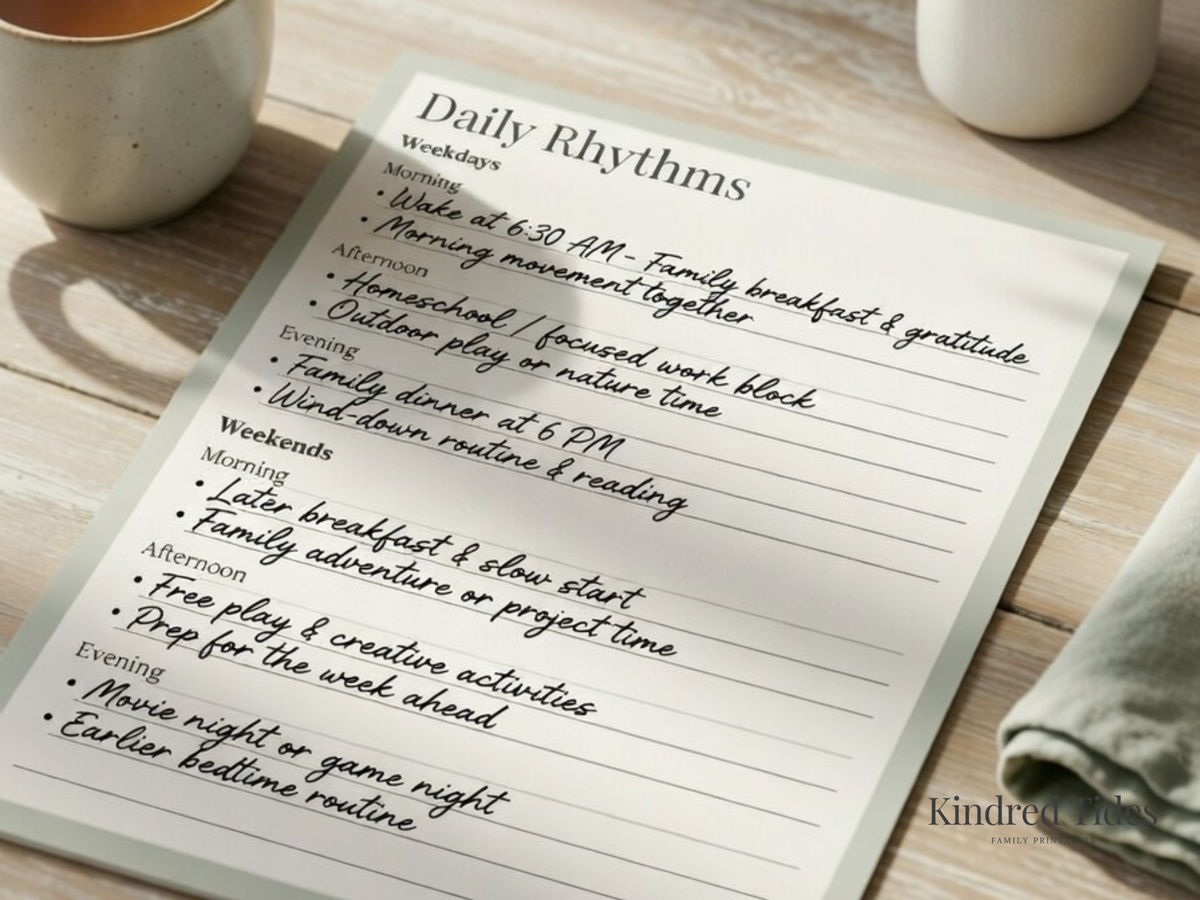 Daily Rhythms
Weekdays
Morning
• Wake at 6:30 AM - Family breakfast & gratitude
• Morning movement together
Afternoon
• Homeschool / focused work block
• Outdoor play or nature time
Evening
• Family dinner at 6 PM
• Wind-down routine & reading
Weekends
Morning
• Later breakfast & slow start
• Family adventure or project time
Afternoon
• Free play & creative activities
• Prep for the week ahead
Evening
• Movie night or game night
• Earlier bedtime routine
Kindred Tides
FAMILY